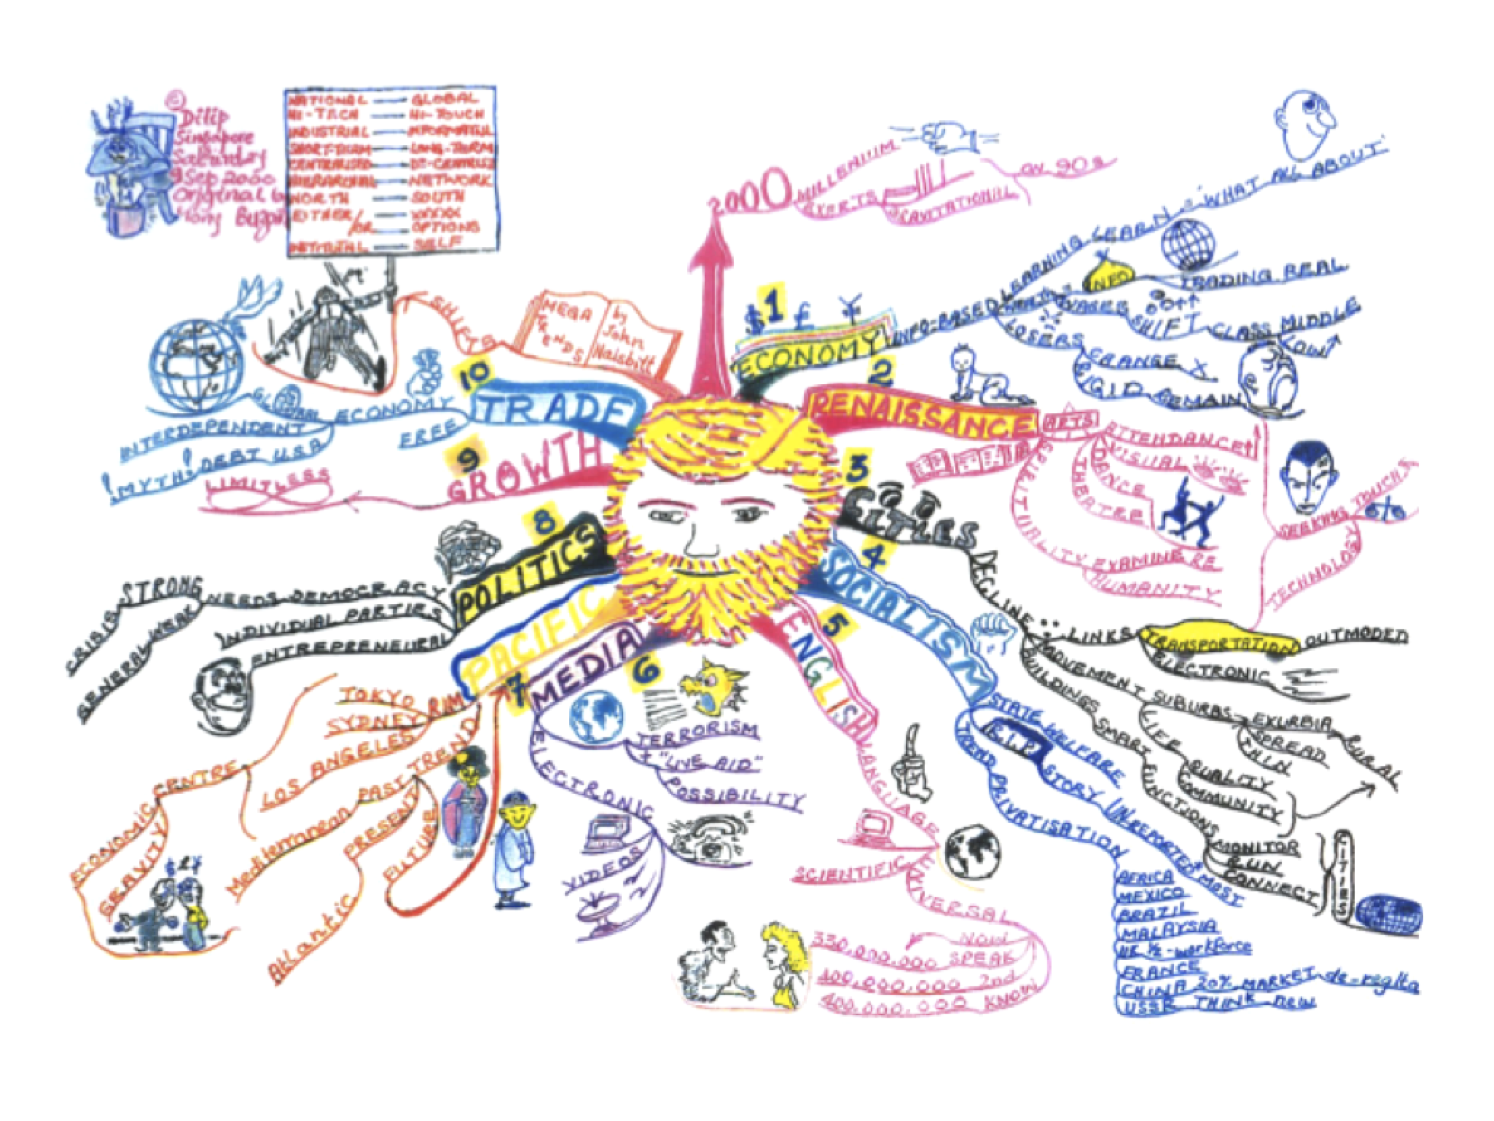 ©
Dilip
Singapore
Saturday
9 Sep 2000
Original by
Tony Buzan
NATIONAL — GLOBAL
HI-TECH — HI-TOUCH
INDUSTRIAL —
SHORT-TERM — LONG-TERM
CENTRALISED —
— NETWORK
NORTH — SOUTH
EITHER/OR — XXXXX OPTIONS
— SELF
SHIFTS
MEGA TRENDS
by John Naisbitt
2000
MILLENIUM
EXERTS
GRAVITATIONAL
ON 90s
1
$ £ ¥
ECONOMY
INFO-BASED
LEARNING LEARN = "WHAT ALL ABOUT"
INFO
TRADING REAL
SHIFT CLASS MIDDLE
LOW
LOSERS
CHANGE X
RIGID REMAIN
2
RENAISSANCE
ARTS
ATTENDANCE
VISUAL
DANCE
THEATRE
SPIRITUALITY
EXAMINE RE
HUMANITY
SEEKING
TOUCH
TECHNOLOGY
3
CITIES
DECLINE
LINKS
TRANSPORTATION
OUTMODED
ELECTRONIC
MOVEMENT SUBURBS
EXURBIA
RURAL
SPREAD
THIN
LIFE
QUALITY
COMMUNITY
BUILDINGS SMART
FUNCTIONS
MONITOR
RUN
CONNECT
CITIES
4
SOCIALISM
STATE WELFARE
R.I.P
STORY UNREPORTED MOST
TREND PRIVATISATION
AFRICA
MEXICO
BRAZIL
MALAYSIA
UK ½ - workforce
FRANCE
CHINA 20% MARKET de-regltn
USSR THINK new
5
ENGLISH
LANGUAGE
SCIENTIFIC
UNIVERSAL
NOW
330,000,000 SPEAK
400,000,000 2nd
400,000,000 KNOW
6
MEDIA
TERRORISM
+ "LIVE AID"
POSSIBILITY
ELECTRONIC
VIDEOS
7
PACIFIC
RIM
TOKYO
SYDNEY
LOS ANGELES
CENTRE
ECONOMIC
GRAVITY
$ £ ¥
TREND
PAST
Mediterranean
PRESENT
Atlantic
FUTURE
8
POLITICS
NEEDS DEMOCRACY
STRONG
CRISIS
GENERAL WEAK
INDIVIDUAL PARTIES
ENTREPRENEURAL
9
GROWTH
LIMITLESS
10
TRADE
ECONOMY
GLOBAL
INTERDEPENDENT
DEBT USA
!MYTH!
FREE